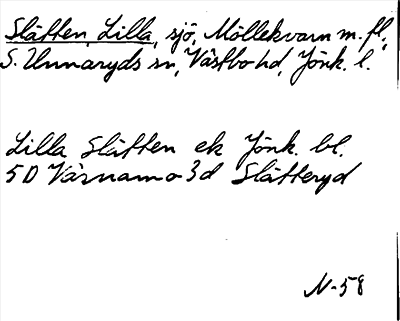 Slätten, Lilla, sjö, Möllekvarn m. fl.,
S. Unnaryds sn, Västbo hd, Jönk. l.
Lilla Slätten ek Jönk. bl.
5D Värnamo 3d Slätteryd
N-58